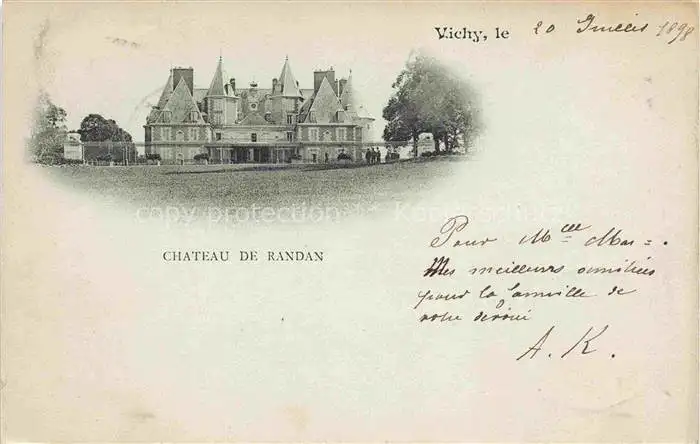 Vichy, le 20 Juillet 1898
CHATEAU DE RANDAN
Pour Mlle Mar
Mes meilleurs amitiés
pour la famille de
votre
A. K.
copy protection